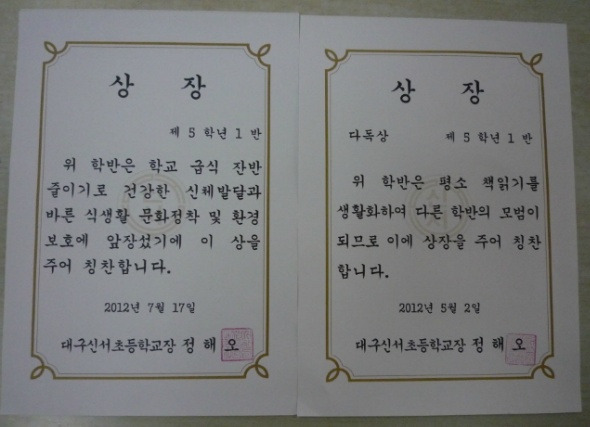 상 장
제 5 학년 1 반
위 학반은 학교 급식 잔반
줄이기로 건강한 신체발달과
바른 식생활 문화정착 및 환경
보호에 앞장섰기에 이 상을
주어 칭찬합니다.
2012년 7월 17일
대구신서초등학교장 정 해 오
상 장
다독상 제 5 학년 1 반
위 학반은 평소 책읽기를
생활화하여 다른 학반의 모범이
되므로 이에 상장을 주어 칭찬
합니다.
2012년 5월 2일
대구신서초등학교장 정 해 오